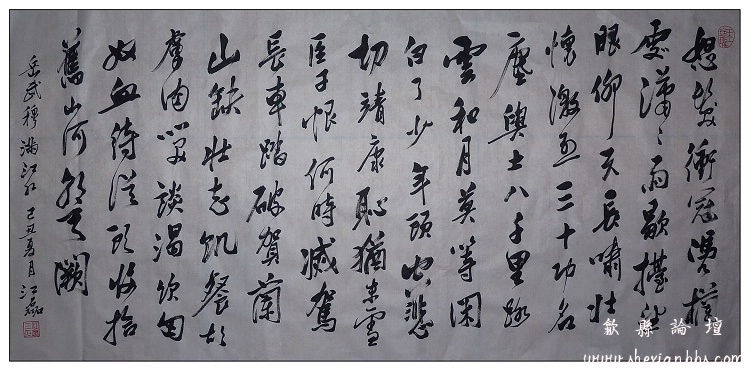 怒髮衝冠憑欄
處瀟〻雨歇擡望
眼仰天長嘯壯
懷激烈三十功名
塵與土八千里路
雲和月莫等閑
白了少年頭空悲
切靖康恥猶未雪
臣子恨何時滅駕
長車踏破賀蘭
山缺壯志飢餐胡
虜肉笑談渴飲匈
奴血待從頭收拾
舊山河朝天闕
岳武穆滿江紅 己丑夏月 江磊
歙縣論壇
www.shexianbbs.com